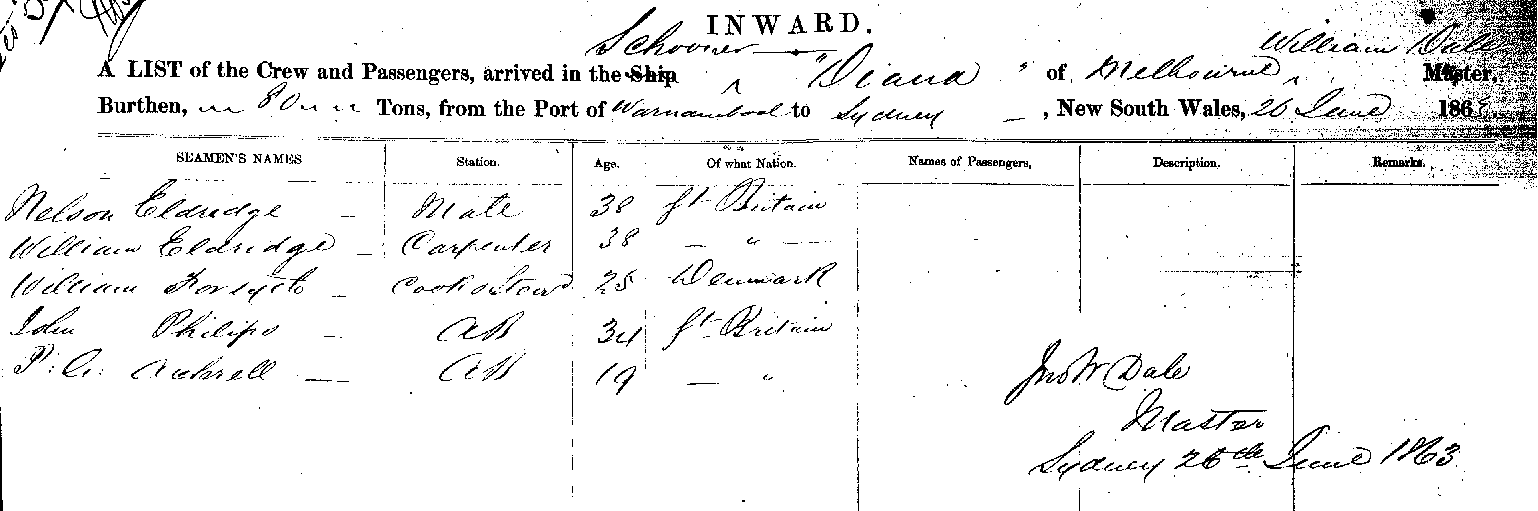 INWARD.
Schooner William Dale
A LIST of the Crew and Passengers, arrived in the Ship "Diana" of Melbourne, Master,
Burthen, 80 Tons, from the Port of Warnambool to Sydney, New South Wales, 26 June 1863
SEAMEN'S NAMES Station. Age. Of what Nation. Names of Passengers, Description. Remarks.
Nelson Eldridge — Mate 38 Gt Britain
William Eldridge — Carpenter 38 — " —
William Forsyth — Cook & Steward 25 Denmark
John Philips — AB 34 Gt Britain
AB 19 — "
Jno W Dale
Master
Sydney 26th June 1863